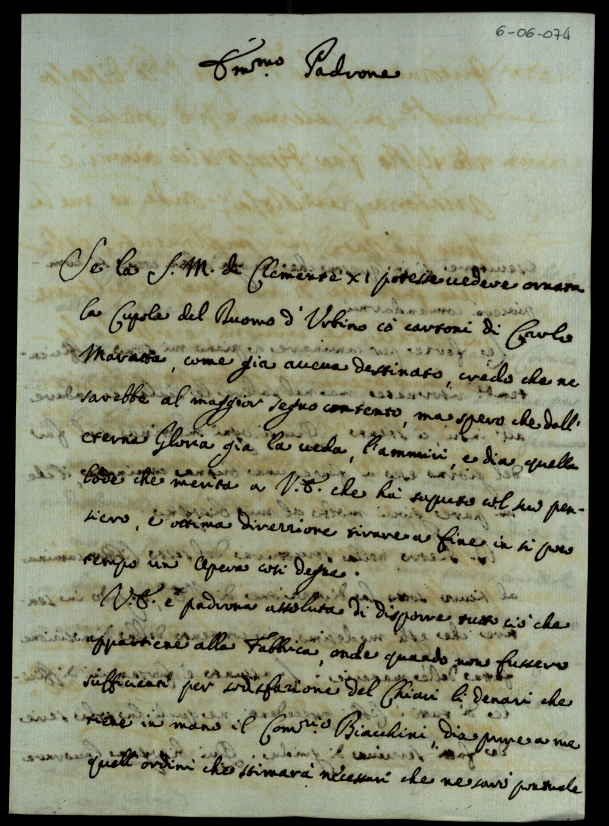 6-06-074
Em.mo Padrone
Se la S. M. di Clemente XI potesse vedere ornata
la Cupola del Duomo d'Urbino cò cartoni di Carlo
Maratta, come già aveva destinato, credo che ne
sarebbe al maggior segno contento, ma spero che dall'
eterna Gloria già la veda, l'ammiri, e dia quella
lode che merita a V. E. che hà saputo col suo pen-
siero, e ottima direzzione tirare a fine in sì poco
tempo un'Opera così degna.
V. E. è padrona assoluta di disporre tutto ciò che
appartiene alla Fabbrica, onde quando non fussero
sufficienti per sodisfazione del Chiari li denari che
tiene in mano il Com.rio Biachini, dia pure a me
quell'ordini che stimarà necessari che ne sarò puntuale